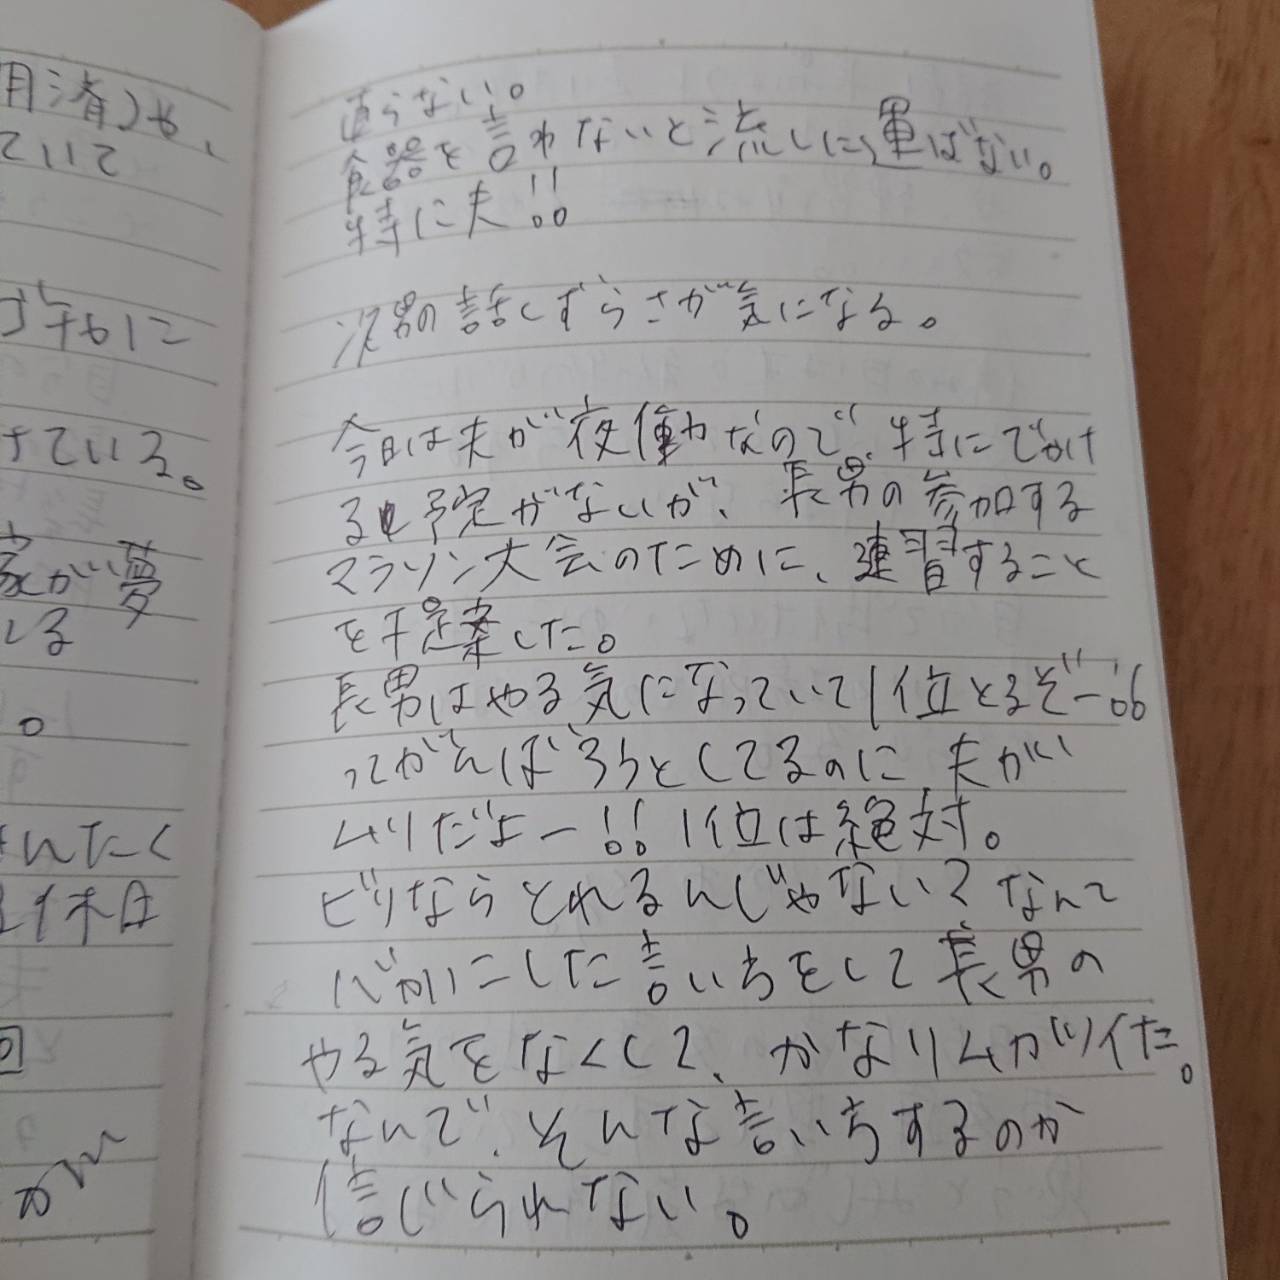 用済)や、
ていて
けている。
家が夢
しる
。
せんたく
休日
回
直らない。
食器を言わないと流しに運ばない。
特に夫!!
次男の話しずらさが気になる。
今日は夫が夜働なので、特にでかけ
る予定がないが、長男の参加する
マラソン大会のために、練習すること
を提案した。
長男はやる気になっていて1位とるぞー!!
ってがんばろうとしてるのに夫が
ムリだよー!!1位は絶対。
ビリならとれるんじゃない?なんて
バカにした言い方をして長男の
やる気をなくして、かなりムカツイた。
なんで、そんな言い方するのか
信じられない。